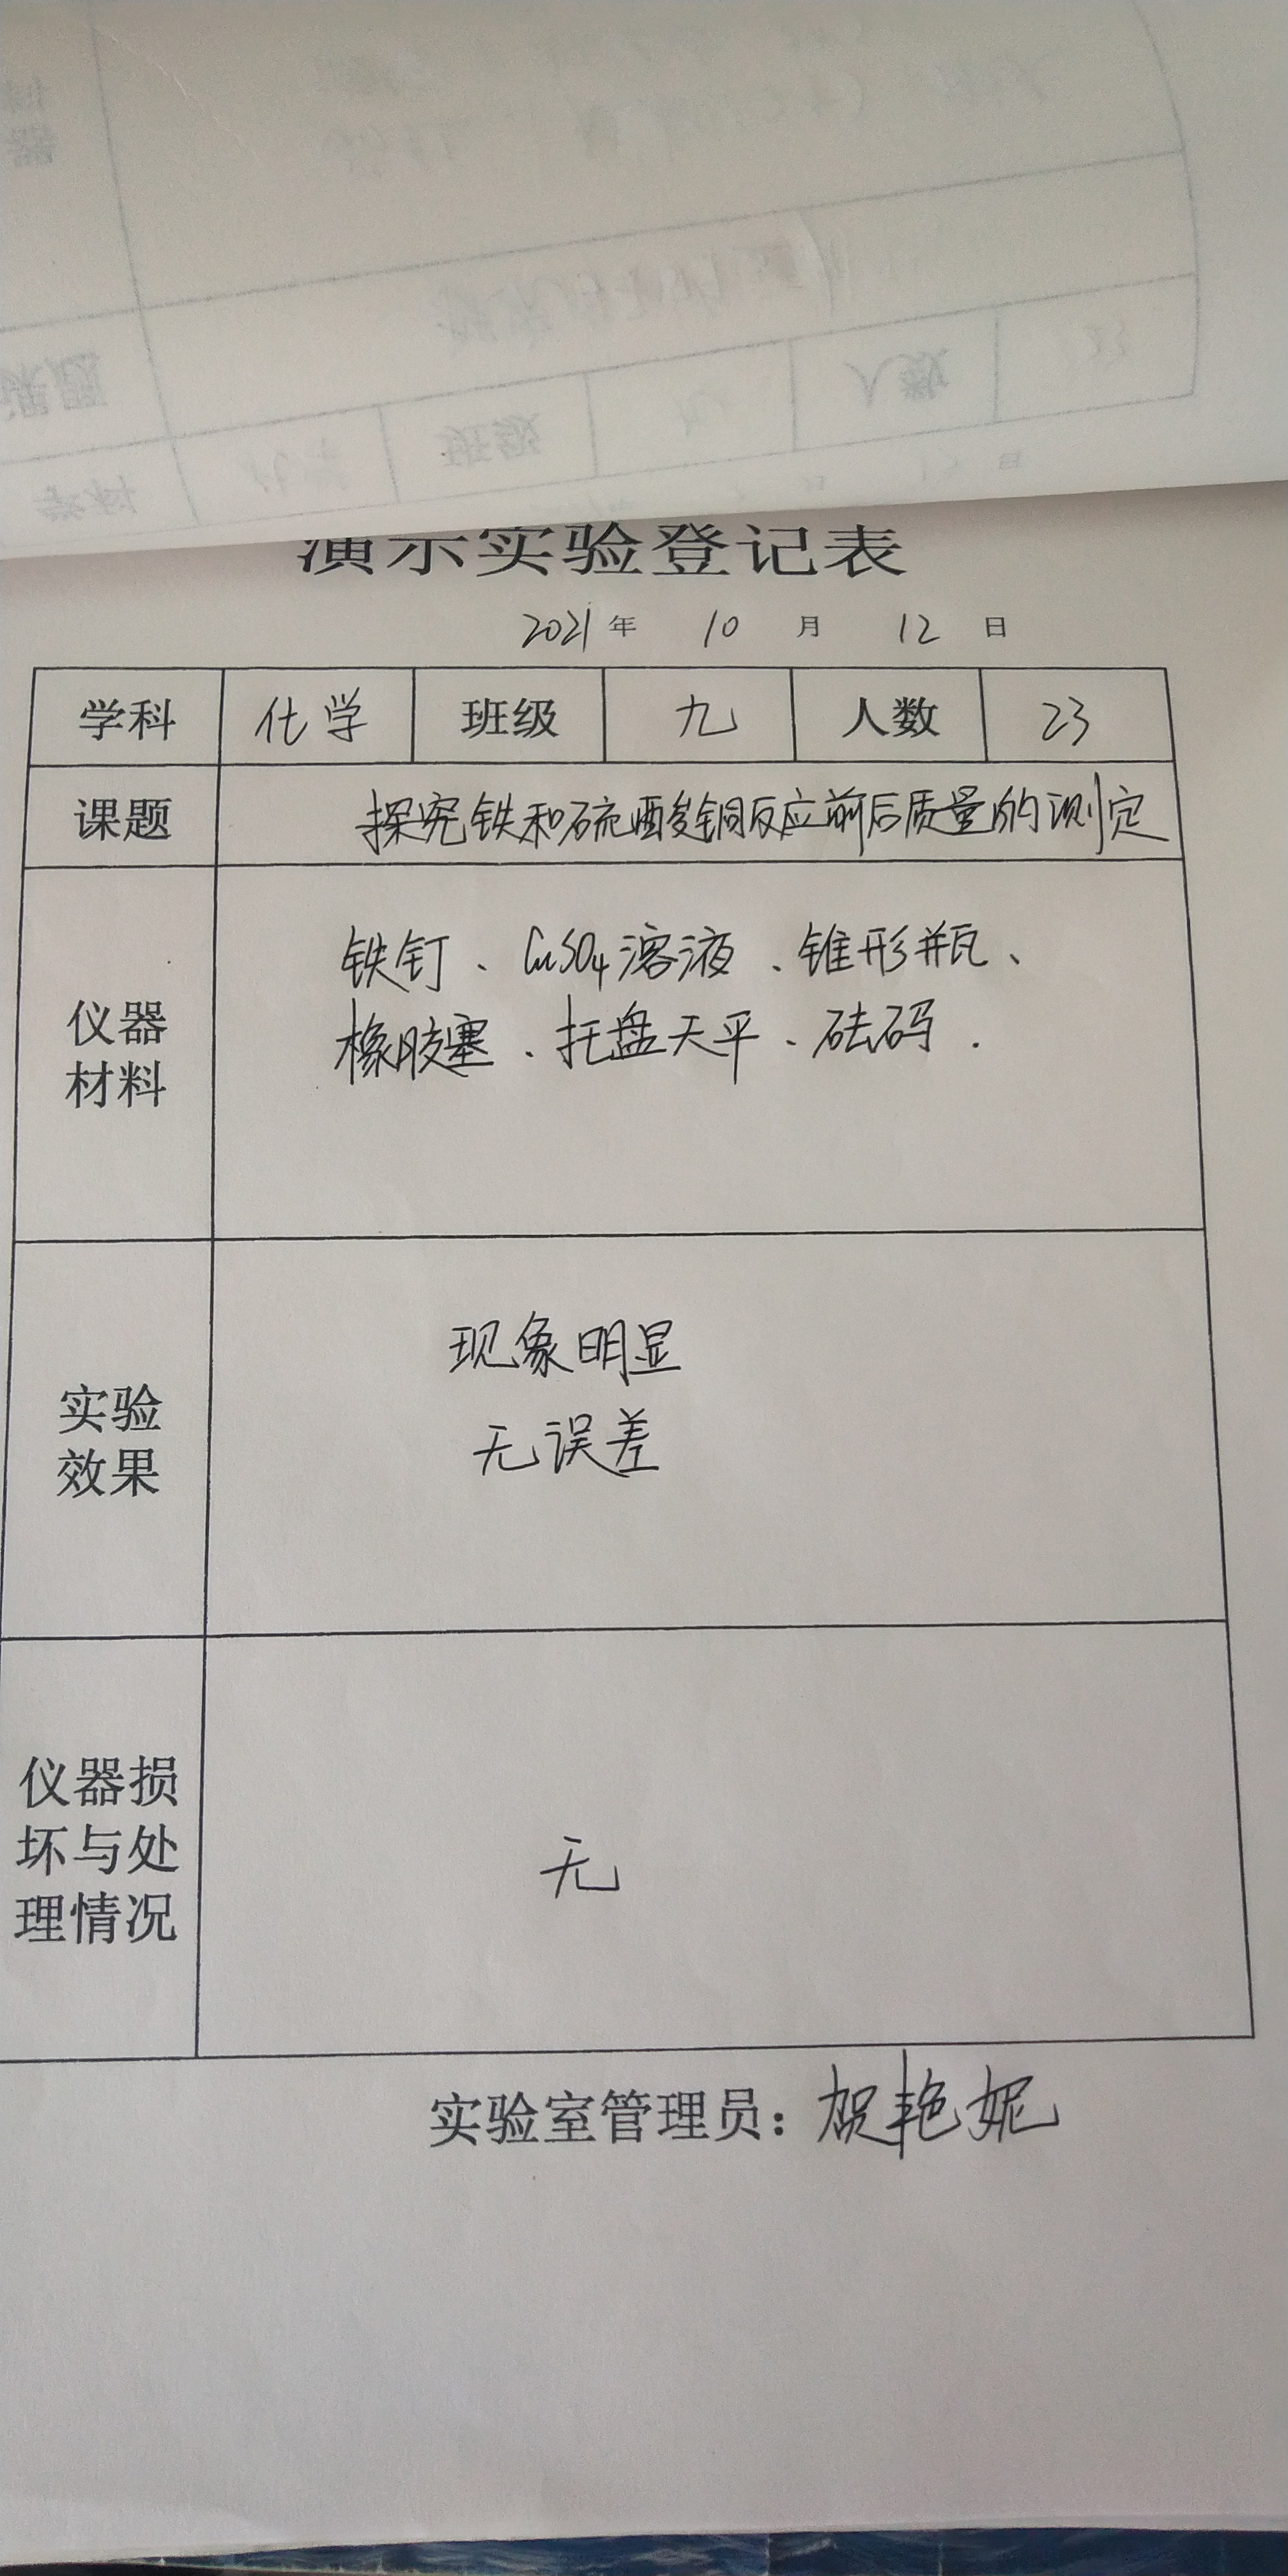 演示实验登记表
2021年 10 月 12 日
学科 化学 班级 九 人数 23
课题 探究铁和硫酸铜反应前后质量的测定
仪器
材料
铁钉、CuSO4溶液、锥形瓶、
橡胶塞、托盘天平、砝码.
实验
效果
现象明显
无误差
仪器损
坏与处
理情况
无
实验室管理员：贺艳妮